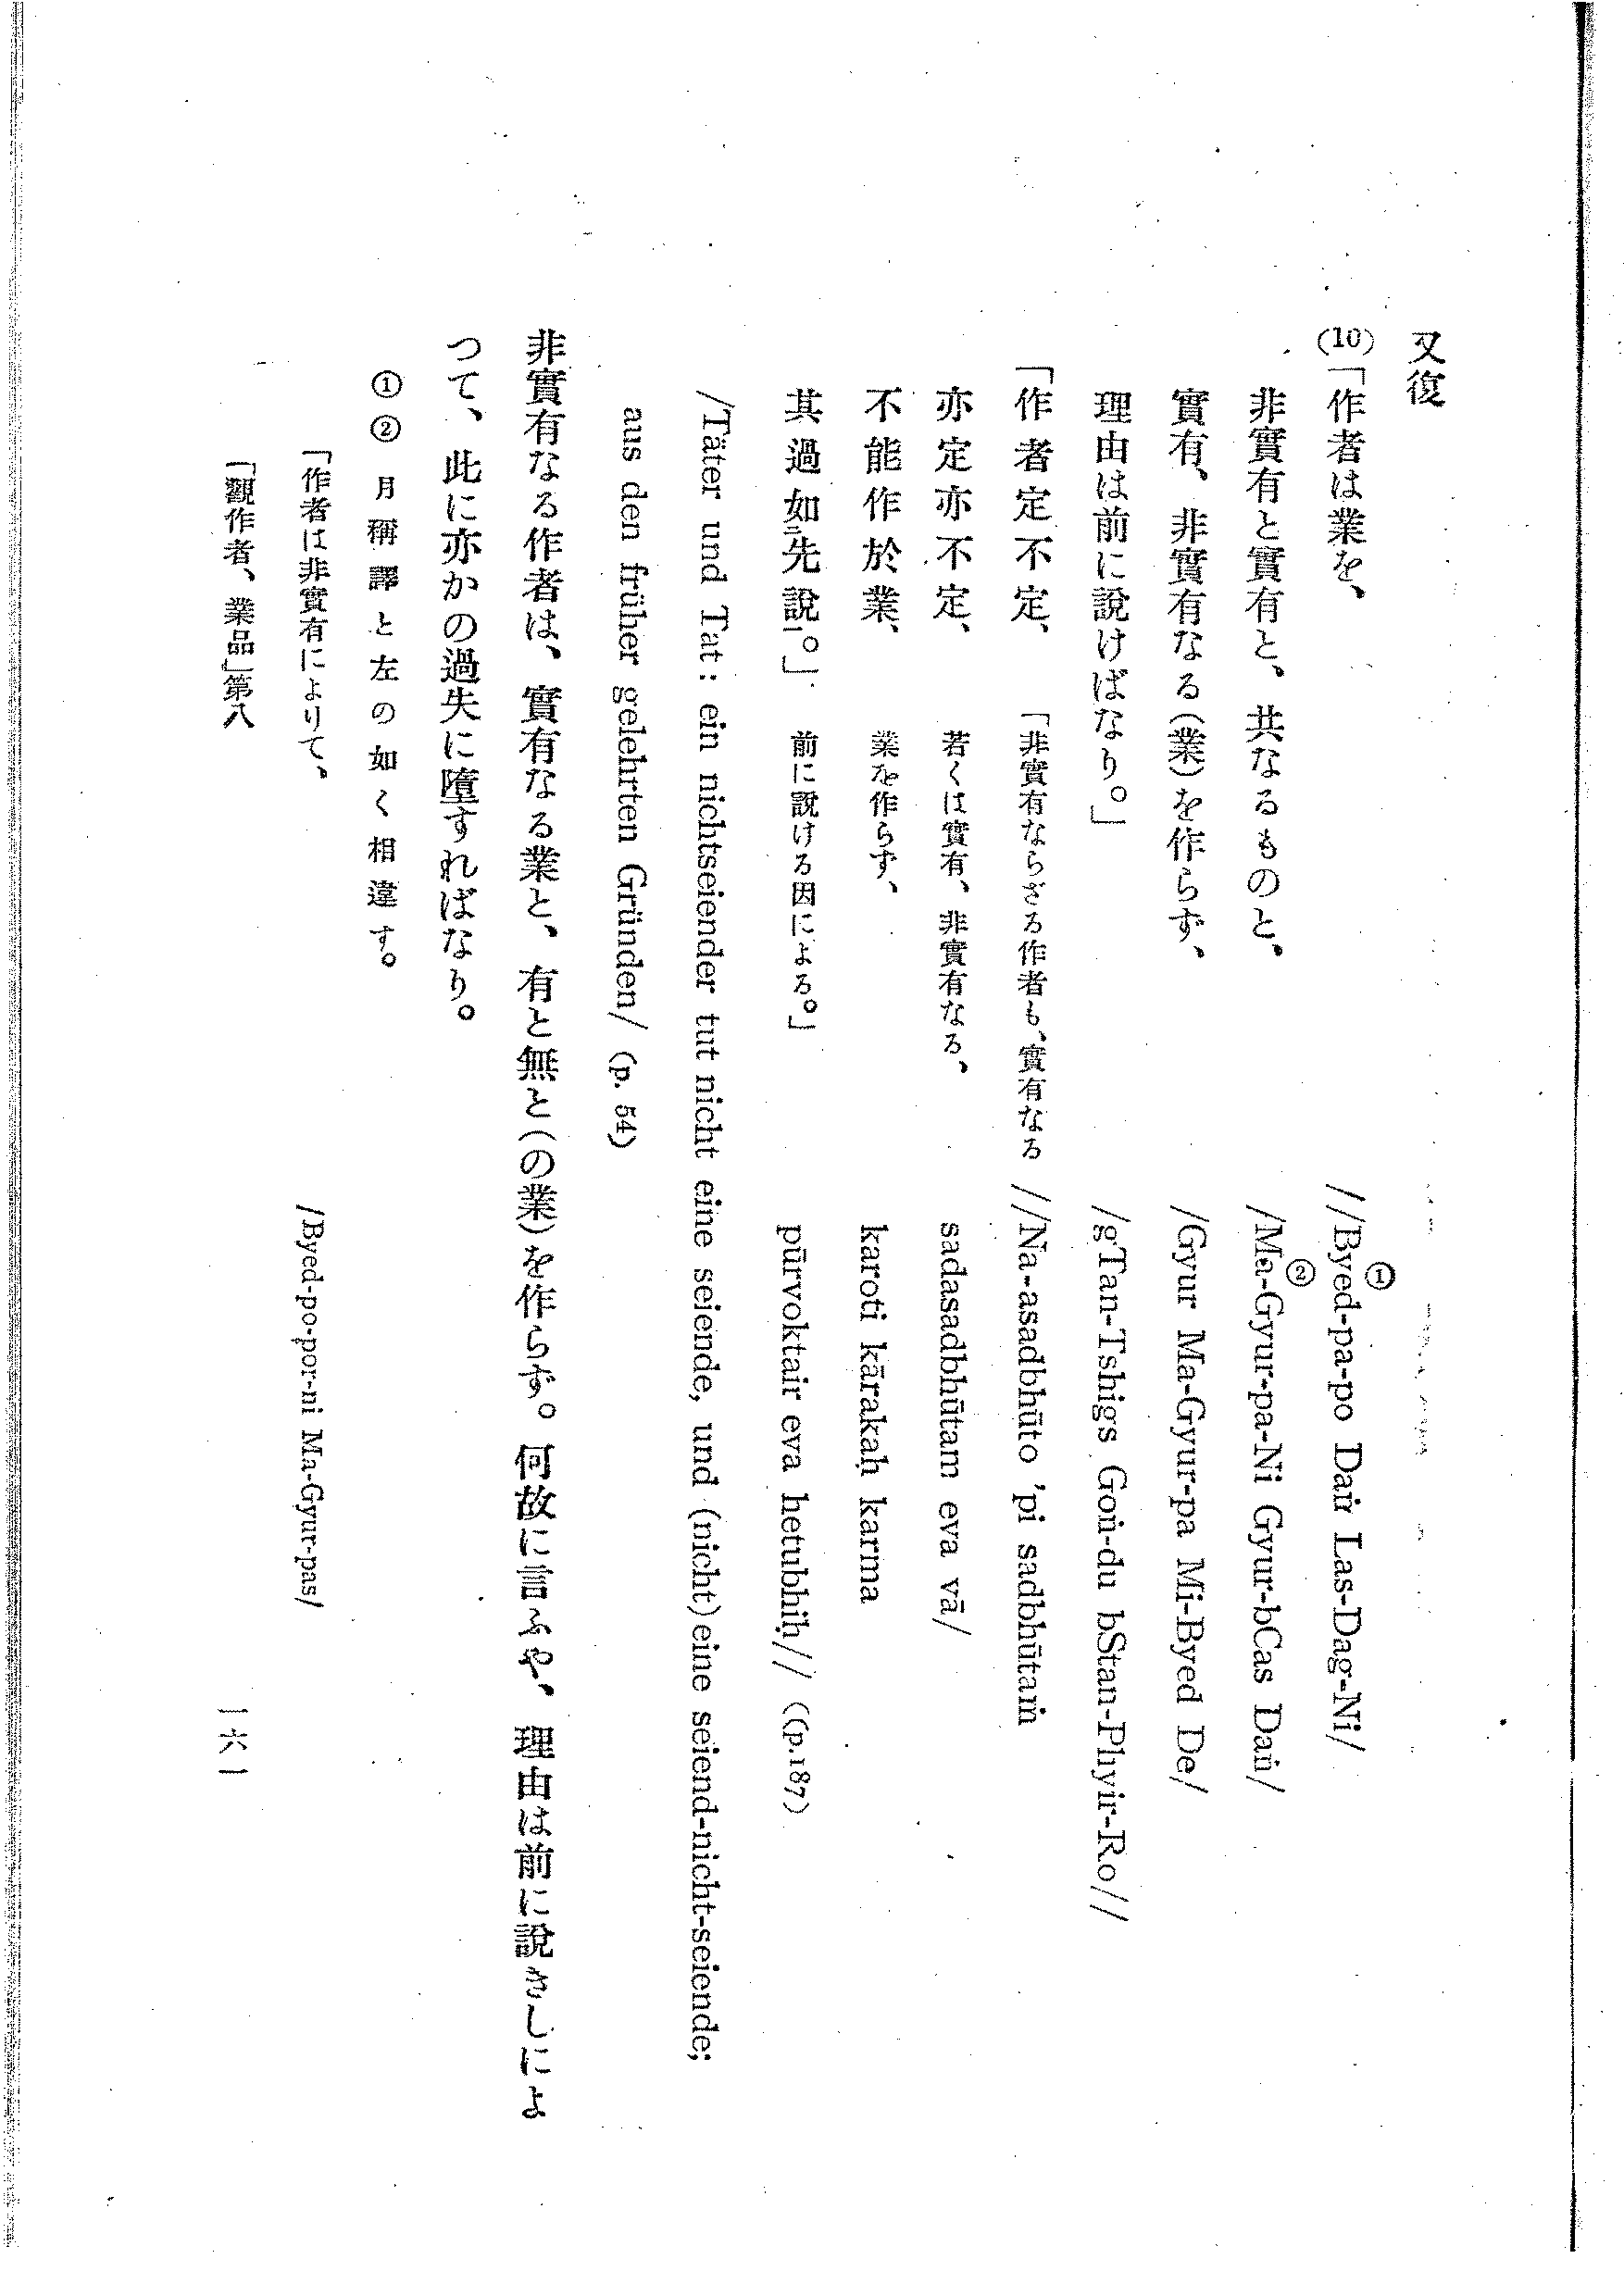 又復
(10)「作者は業を、 //Byed-pa-po① Daṅ Las-Dag-Ni/
非實有と實有と、共なるものと、 /Ma-②Gyur-pa-Ni Gyur-bCas Daṅ/
實有、非實有なる(業)を作らず、 /Gyur Ma-Gyur-pa Mi-Byed De/
理由は前に說けばなり。」 /gTan-Tshigs Goṅ-du bStan-Phyir-Ro//
「作者定不定、 「非實有ならざる作者も、實有なる //Na-asadbhūto 'pi sadbhūtaṁ
亦定亦不定、 若くは實有、非實有なる、 sadasadbhūtam eva vā/
不能作於業、 業を作らず、 karoti kārakaḥ karma
其過如二先說一。」 前に說ける因による。」 pūrvoktair eva hetubhiḥ// ((p.187)
/Täter und Tat: ein nichtseiender tut nicht eine seiende, und (nicht) eine seiend-nicht-seiende;
aus den früher gelehrten Gründen/ (p. 54)
非實有なる作者は、實有なる業と、有と無と(の業)を作らず。何故に言ふや、理由は前に說きしによ
つて、此に亦かの過失に墮すればなり。
①② 月稱譯と左の如く相違す。
「作者は非實有によりて、 /Byed-po-por-ni Ma-Gyur-pas/
「觀作者、業品」第八 一六一